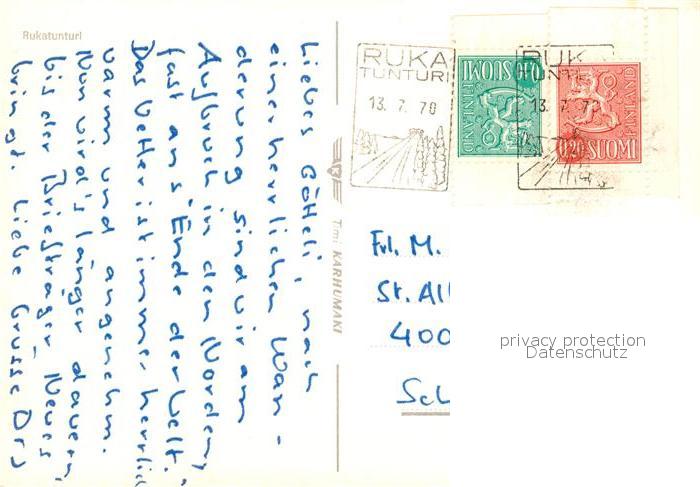 Rukatunturi
Liebes Götteli, nach
einer herrlichen Wan-
derung sind wir am
Aufbruch in den Norden,
fast ans "Ende der Welt."
Das Wetter ist immer herrlich
warm und angenehm.
Nun wird's länger dauern
bis der Briefträger Neues
bringt. Liebe Grüsse
Timi KARHUMÄKI
RUKA
TUNTURI
13.7.70
RUK
TUNTU
13.7.70
0,40 SUOMI
FINLAND
0,20 SUOMI
FINLAND
Frl. M.
St. Al
400
Sc
privacy protection
Datenschutz